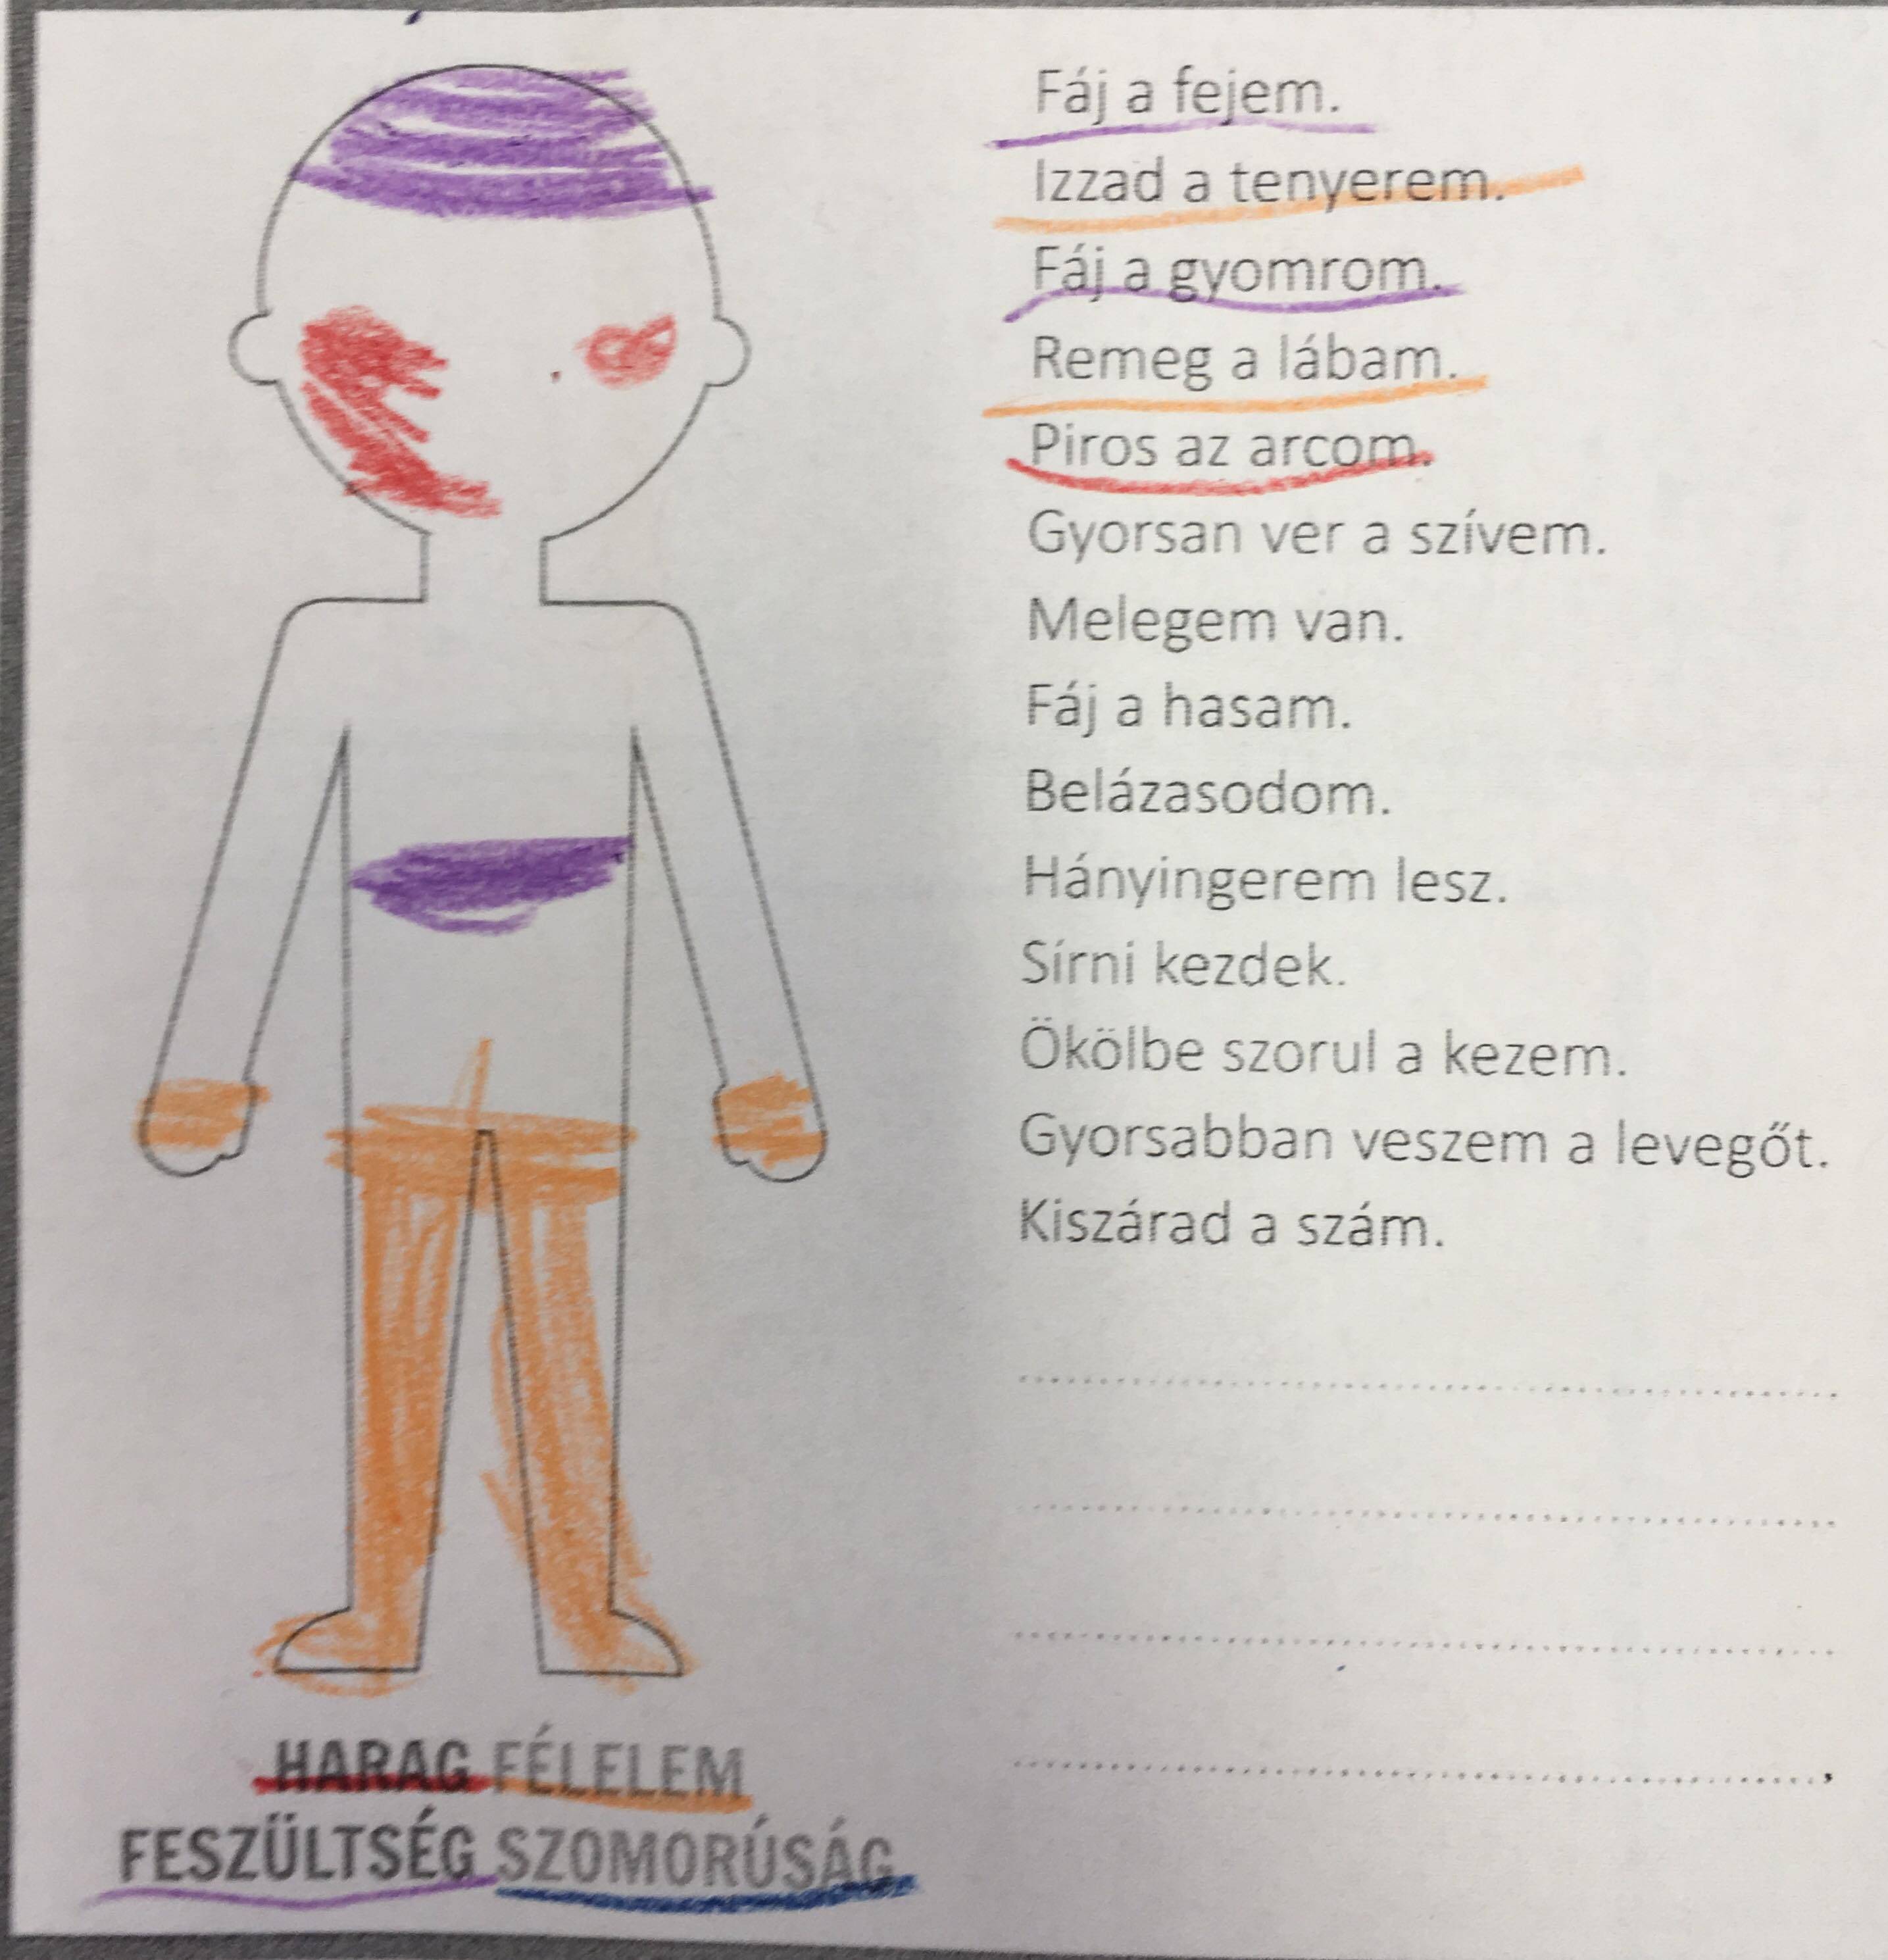 Fáj a fejem.
Izzad a tenyerem.
Fáj a gyomrom.
Remeg a lábam.
Piros az arcom.
Gyorsan ver a szívem.
Melegem van.
Fáj a hasam.
Belázasodom.
Hányingerem lesz.
Sírni kezdek.
Ökölbe szorul a kezem.
Gyorsabban veszem a levegőt.
Kiszárad a szám.
HARAG FÉLELEM
FESZÜLTSÉG SZOMORÚSÁG